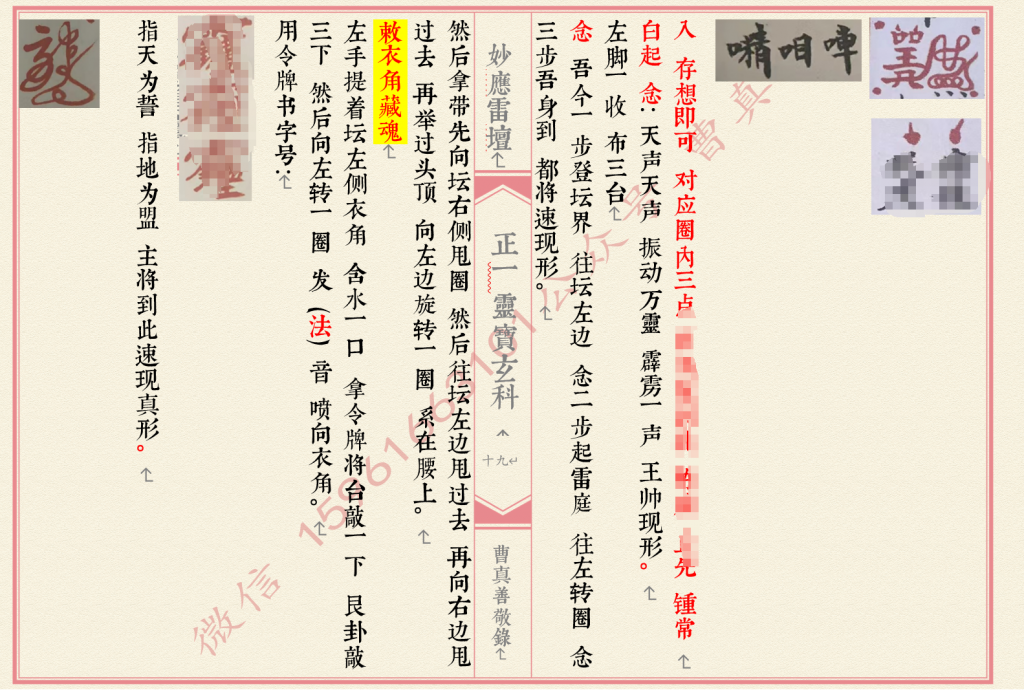 入 存想即可 对应圈内三点
先 锺常
白起 念：天声天声 振动万靈 霹雳一声 王帅现形。
左脚一收 布三台
念 吾今一步登坛界 往坛左边 念二步起雷庭 往左转圈 念
三步吾身到 都将速现形。
妙應雷壇
正一靈寶玄科
十九
曹真善敬錄
然后拿带先向坛右侧甩圈 然后往坛左边甩过去 再向右边甩
过去 再举过头顶 向左边旋转一圈 系在腰上。
敕衣角藏魂
左手提着坛左侧衣角 含水一口 拿令牌将台敲一下 艮卦敲
三下 然后向左转一圈 发（法）音 喷向衣角。
用令牌书字号：
指天为誓 指地为盟 主将到此速现真形。
微信 15961663161 公众号 曹真